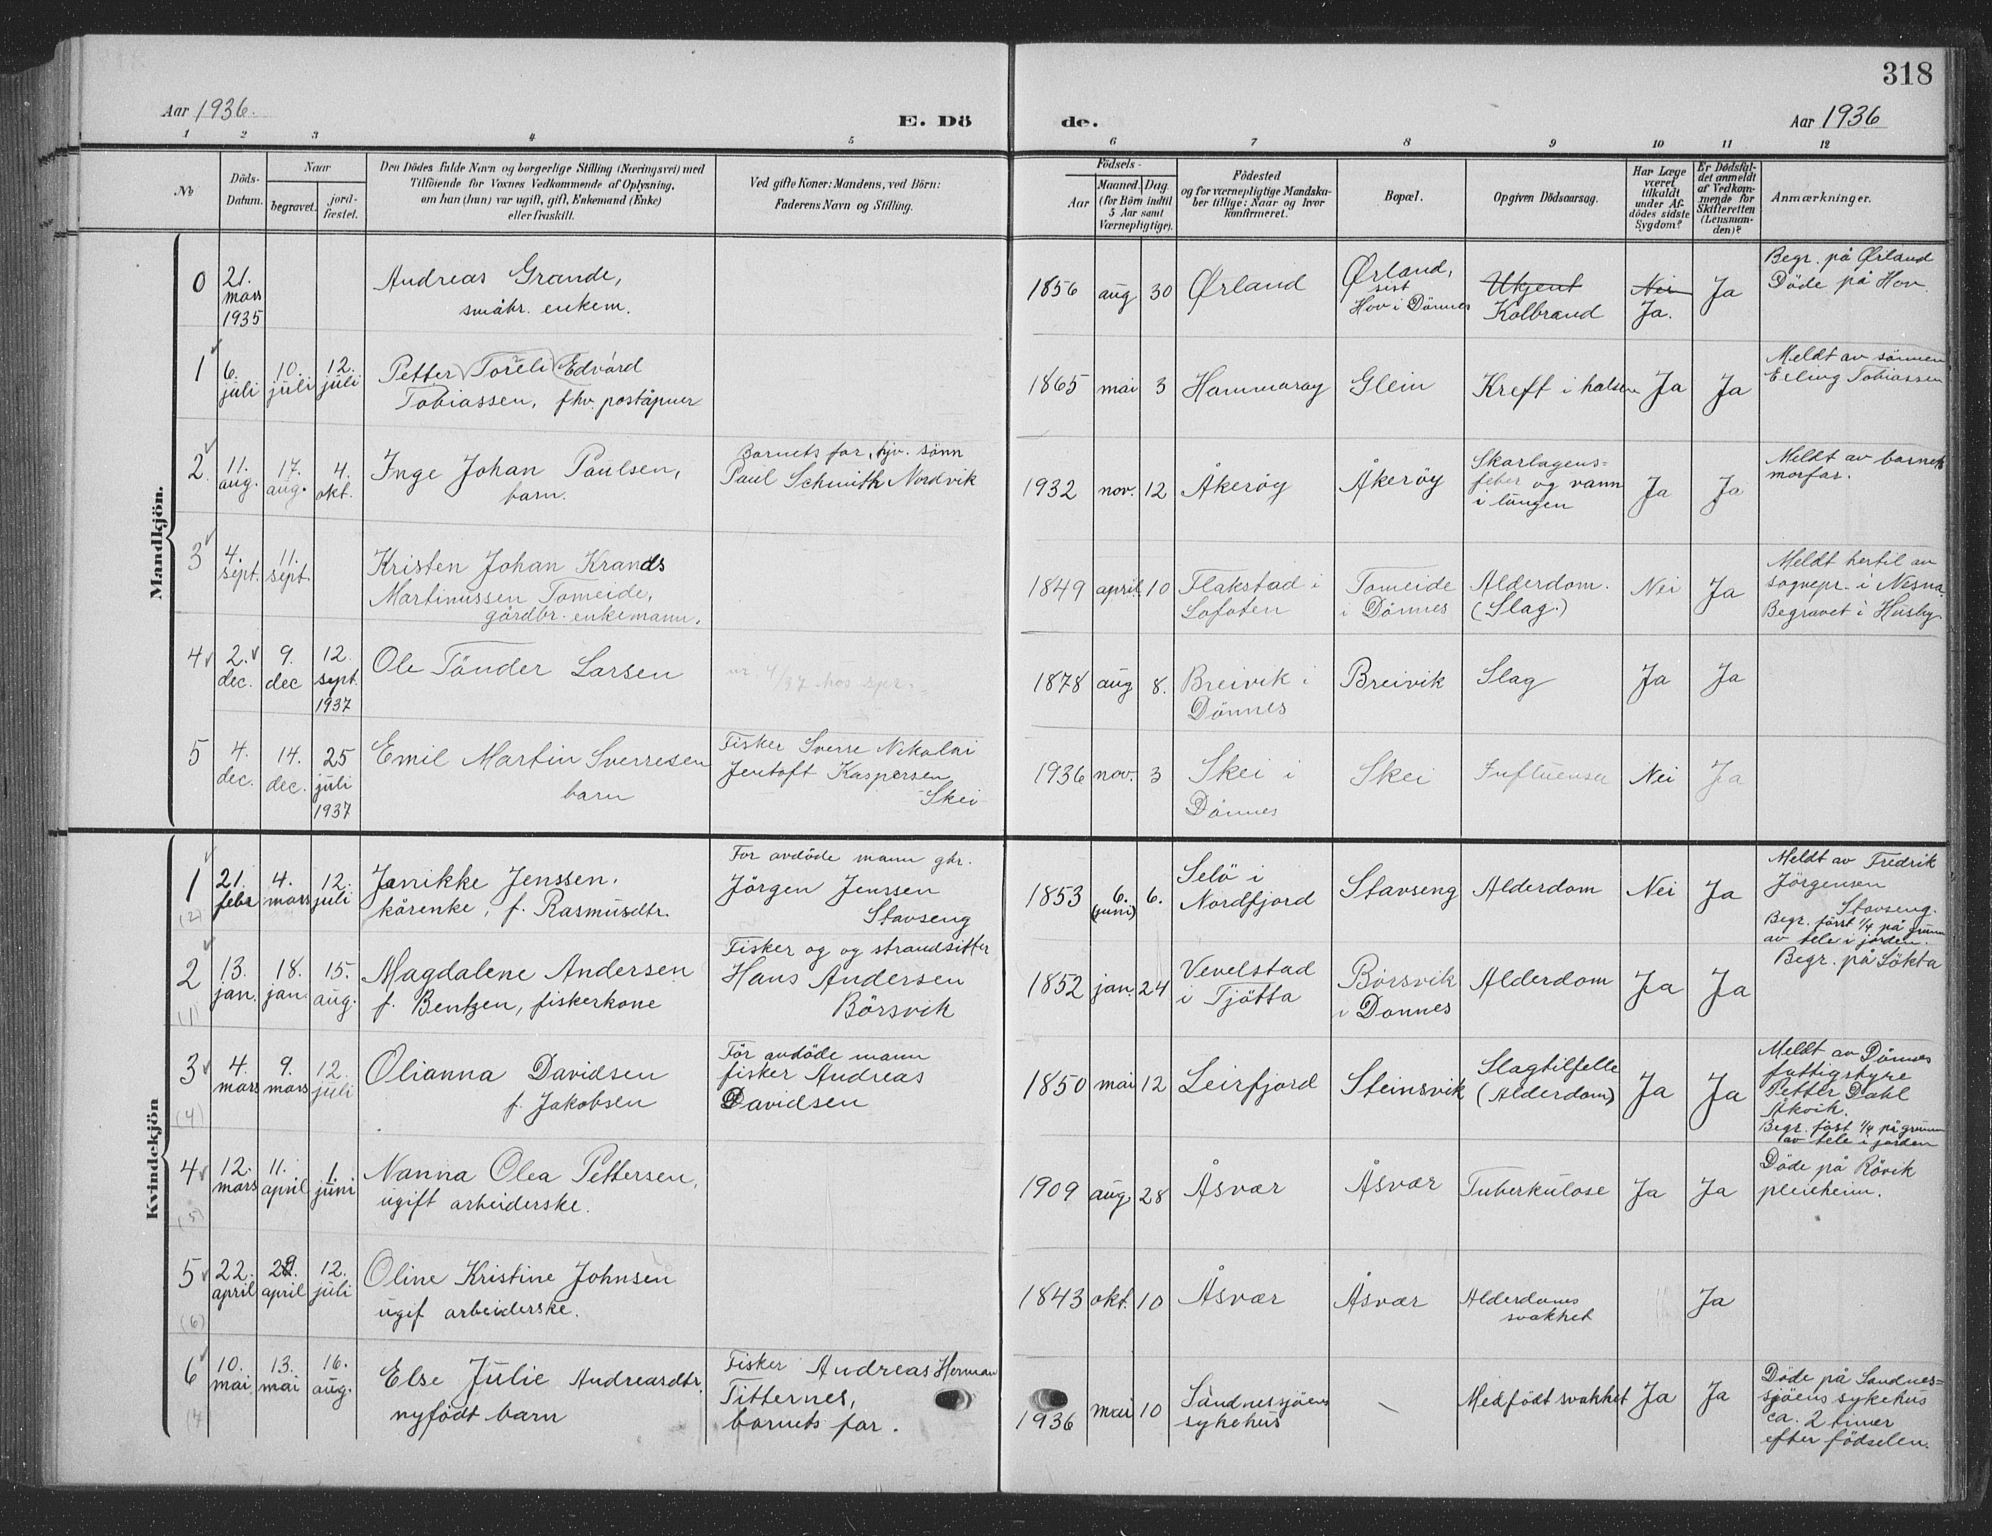 318
Aar 1936.
E. Dö
de.
Aar 1936
1 2 3 4 5 6 7 8 9 10 11 12
No
Döds-
Datum.
Naar
begravet.
jord-
fæstet.
Den Dödes fulde Navn og borgerlige Stilling (Næringsvei) med
Tilföiende for Voxnes Vedkommende af Oplysning,
om han (hun) var ugift, gift, Enkemand (Enke)
eller fraskilt.
Ved gifte Koner: Mandens, ved Börn:
Faderens Navn og Stilling.
Födsels-
Aar
Maaned. Dag
(for Börn indtil
5 Aar samt
Værnepligtige).
Födested
og for værnepligtige Mandska-
ber tillige: Naar og hvor
konfirmeret.
Bopæl.
Opgiven Dödsaarsag.
Har Læge
været
tilkaldt
under Af-
dödes sidste
Sygdom?
Er Dödsfal-
det anmeldt
af Vedkom-
mende for
Skifteretten
(Lensman-
den)?
Anmærkninger.
Mandkjön.
0
21.
mars
1935
Andreas Grande,
småbr. enkem.
1856 aug 30
Ørland
Ørland,
sist
Hov i Dönnes
Ukjent
Kolbrand
Nei
Ja.
Ja
Begr. på Ørland
Döde på Hov.
1
6.
juli
10.
juli
12.
juli
Petter (Toreli) Edvard
Tobiassen, fhv. poståpner
1865 mai 3
Hammaröy
Glein
Kreft i halsen
Ja
Ja
Meldt av sönnen
Erling Tobiassen
2
11.
aug.
17.
aug.
4.
okt.
Inge Johan Paulsen,
barn.
Barnets far, hjv. sönn
Paul Schmith Nordvik
1932 nov. 12
Åkeröy
Åkeröy
Skarlagens-
feber og vann
i lungen
Ja
Ja
Meldt av barnets
morfar.
3
4.
sept.
11.
sept.
Kristen Johan Krands
Martinussen Tomeide,
gårdbr. enkemann.
1849 april 10
Flakstad i
Lofoten
Tomeide
i Dönnes
Alderdom.
(Slag.)
Nei
Ja
Meldt hertil av
sognepr. i Nesna.
Begravet i Husby
4
2.
dec.
9.
dec
12.
sept.
1937
Ole Tönder Larsen
nr 4/37 hos spr.
1878 aug 8.
Breivik i
Dönnes
Breivik
Slag
Ja
Ja
5
4.
dec.
14.
dec.
25
juli
1937
Emil Martin Sverresen
barn
Fisker Sverre Nikolai
Jentoft Kaspersen
Skei
1936 nov. 3
Skei i
Dönnes
Skei
Influensa
Nei
Ja
Kvindekjön
1
(2)
21.
febr
4.
mars
12.
juli
Janikke Jenssen,
kårenke, f. Rasmusdtr.
For avdöde mann gbr.
Jörgen Jenssen
Stavseng
1853
6.
(juni)
6.
Selö i
Nordfjord
Stavseng
Alderdom
Nei
Ja
Meldt av Fredrik
Jörgensen
Stavseng.
Begr. först 1/4 på grunn
av tele i jorden.
2
(1)
13.
jan.
18.
jan.
15.
aug.
Magdalene Andersen
f. Bentzen, fiskerkone
Fisker og og strandsitter
Hans Andersen
Börsvik
1852 jan. 24
Vevelstad
i Tjötta
Börsvik
i Dönnes
Alderdom
Ja
Ja
Begr. på Lökta
3
(4)
4.
mars
9.
mars
12.
juli
Olianna Davidsen
f. Jakobsen
For avdöde mann
fisker Andreas
Davidsen
1850 mai 12
Leirfjord
Steinsvik
Slagtilfelle
(Alderdom)
Ja
Ja
Meldt av Dönnes
fattigstyre
Petter Dahl
Åkvik.
Begr. föst 1/4 på grunn
av tele i jorden
4
(5)
12.
mars
11.
april
1.
juni
Nanna Olea Pettersen,
ugift arbeiderske.
1909 aug. 28
Åsvær
Åsvær
Tuberkulose
Ja
Ja
Döde på Rövik
pleieheim.
5
(6)
22.
april
29.
april
12.
juli
Oline Kristine Johnsen
ugif arbeiderske.
1843 okt. 10
Åsvær
Åsvær
Alderdoms
svakhet
Ja
6
10.
mai
13.
mai
16.
aug.
Else Julie Andreasdtr.
nyfödt barn
Fisker Andreas Herman
Titternes,
barnets far.
1936 mai 10
Sandnessjöens
sykehus
Medfödt svakhet
Ja
Ja
Döde på Sandnes-
sjöens sykehus
ca. 2 timer
efter födselen.